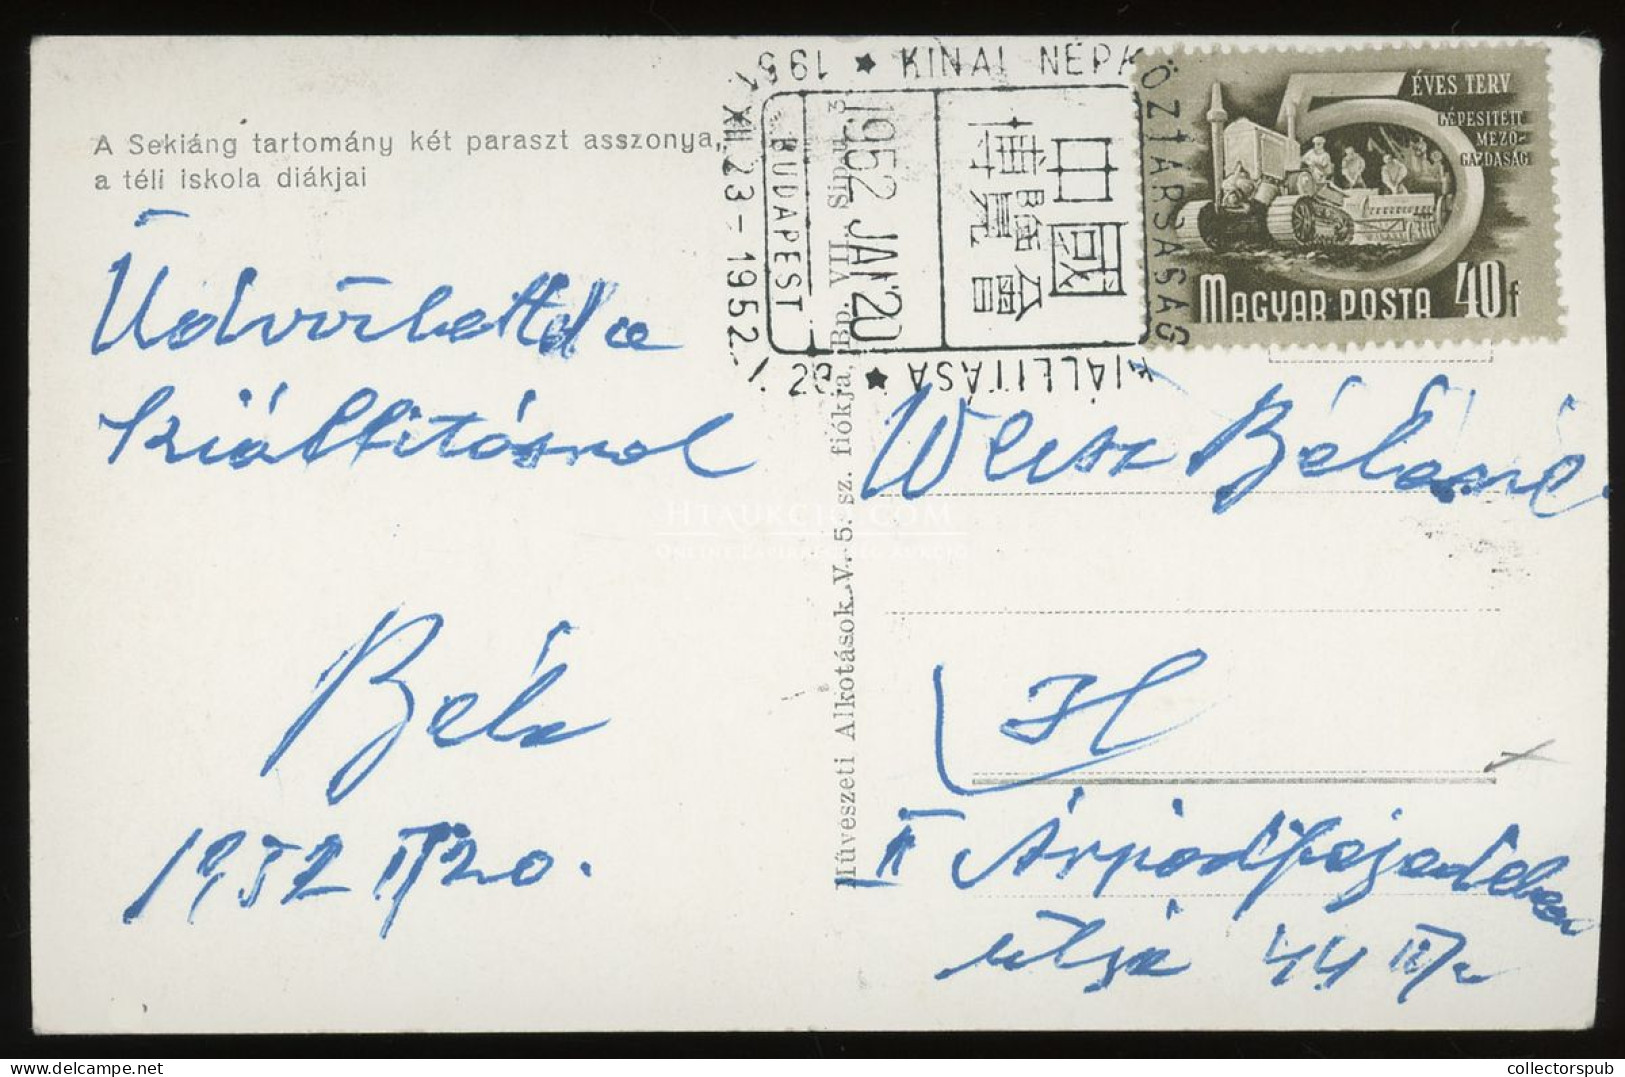 A Sekiáng tartomány két paraszt asszonya,
a téli iskola diákjai
Üdvözlettel a
kiállitásról
Béla
1952 I/20.
1951 XII 23 - 1952. I. 28 ★ KINAI NÉPKÖZTÁRSASÁG KIÁLLITÁSA ★
BUDAPEST
1952 JAN 20
中國
博覽會
5 ÉVES TERV
GÉPESITETT
MEZŐ-
GAZDASÁG
MAGYAR POSTA 40f
Művészeti Alkotások. V., 5. sz. fiókja, Bp. VII., Sip u. 3
HTAUKCIO.COM
Weisz Béláné
II Árpádfejedelem
útja 44
collectorspub